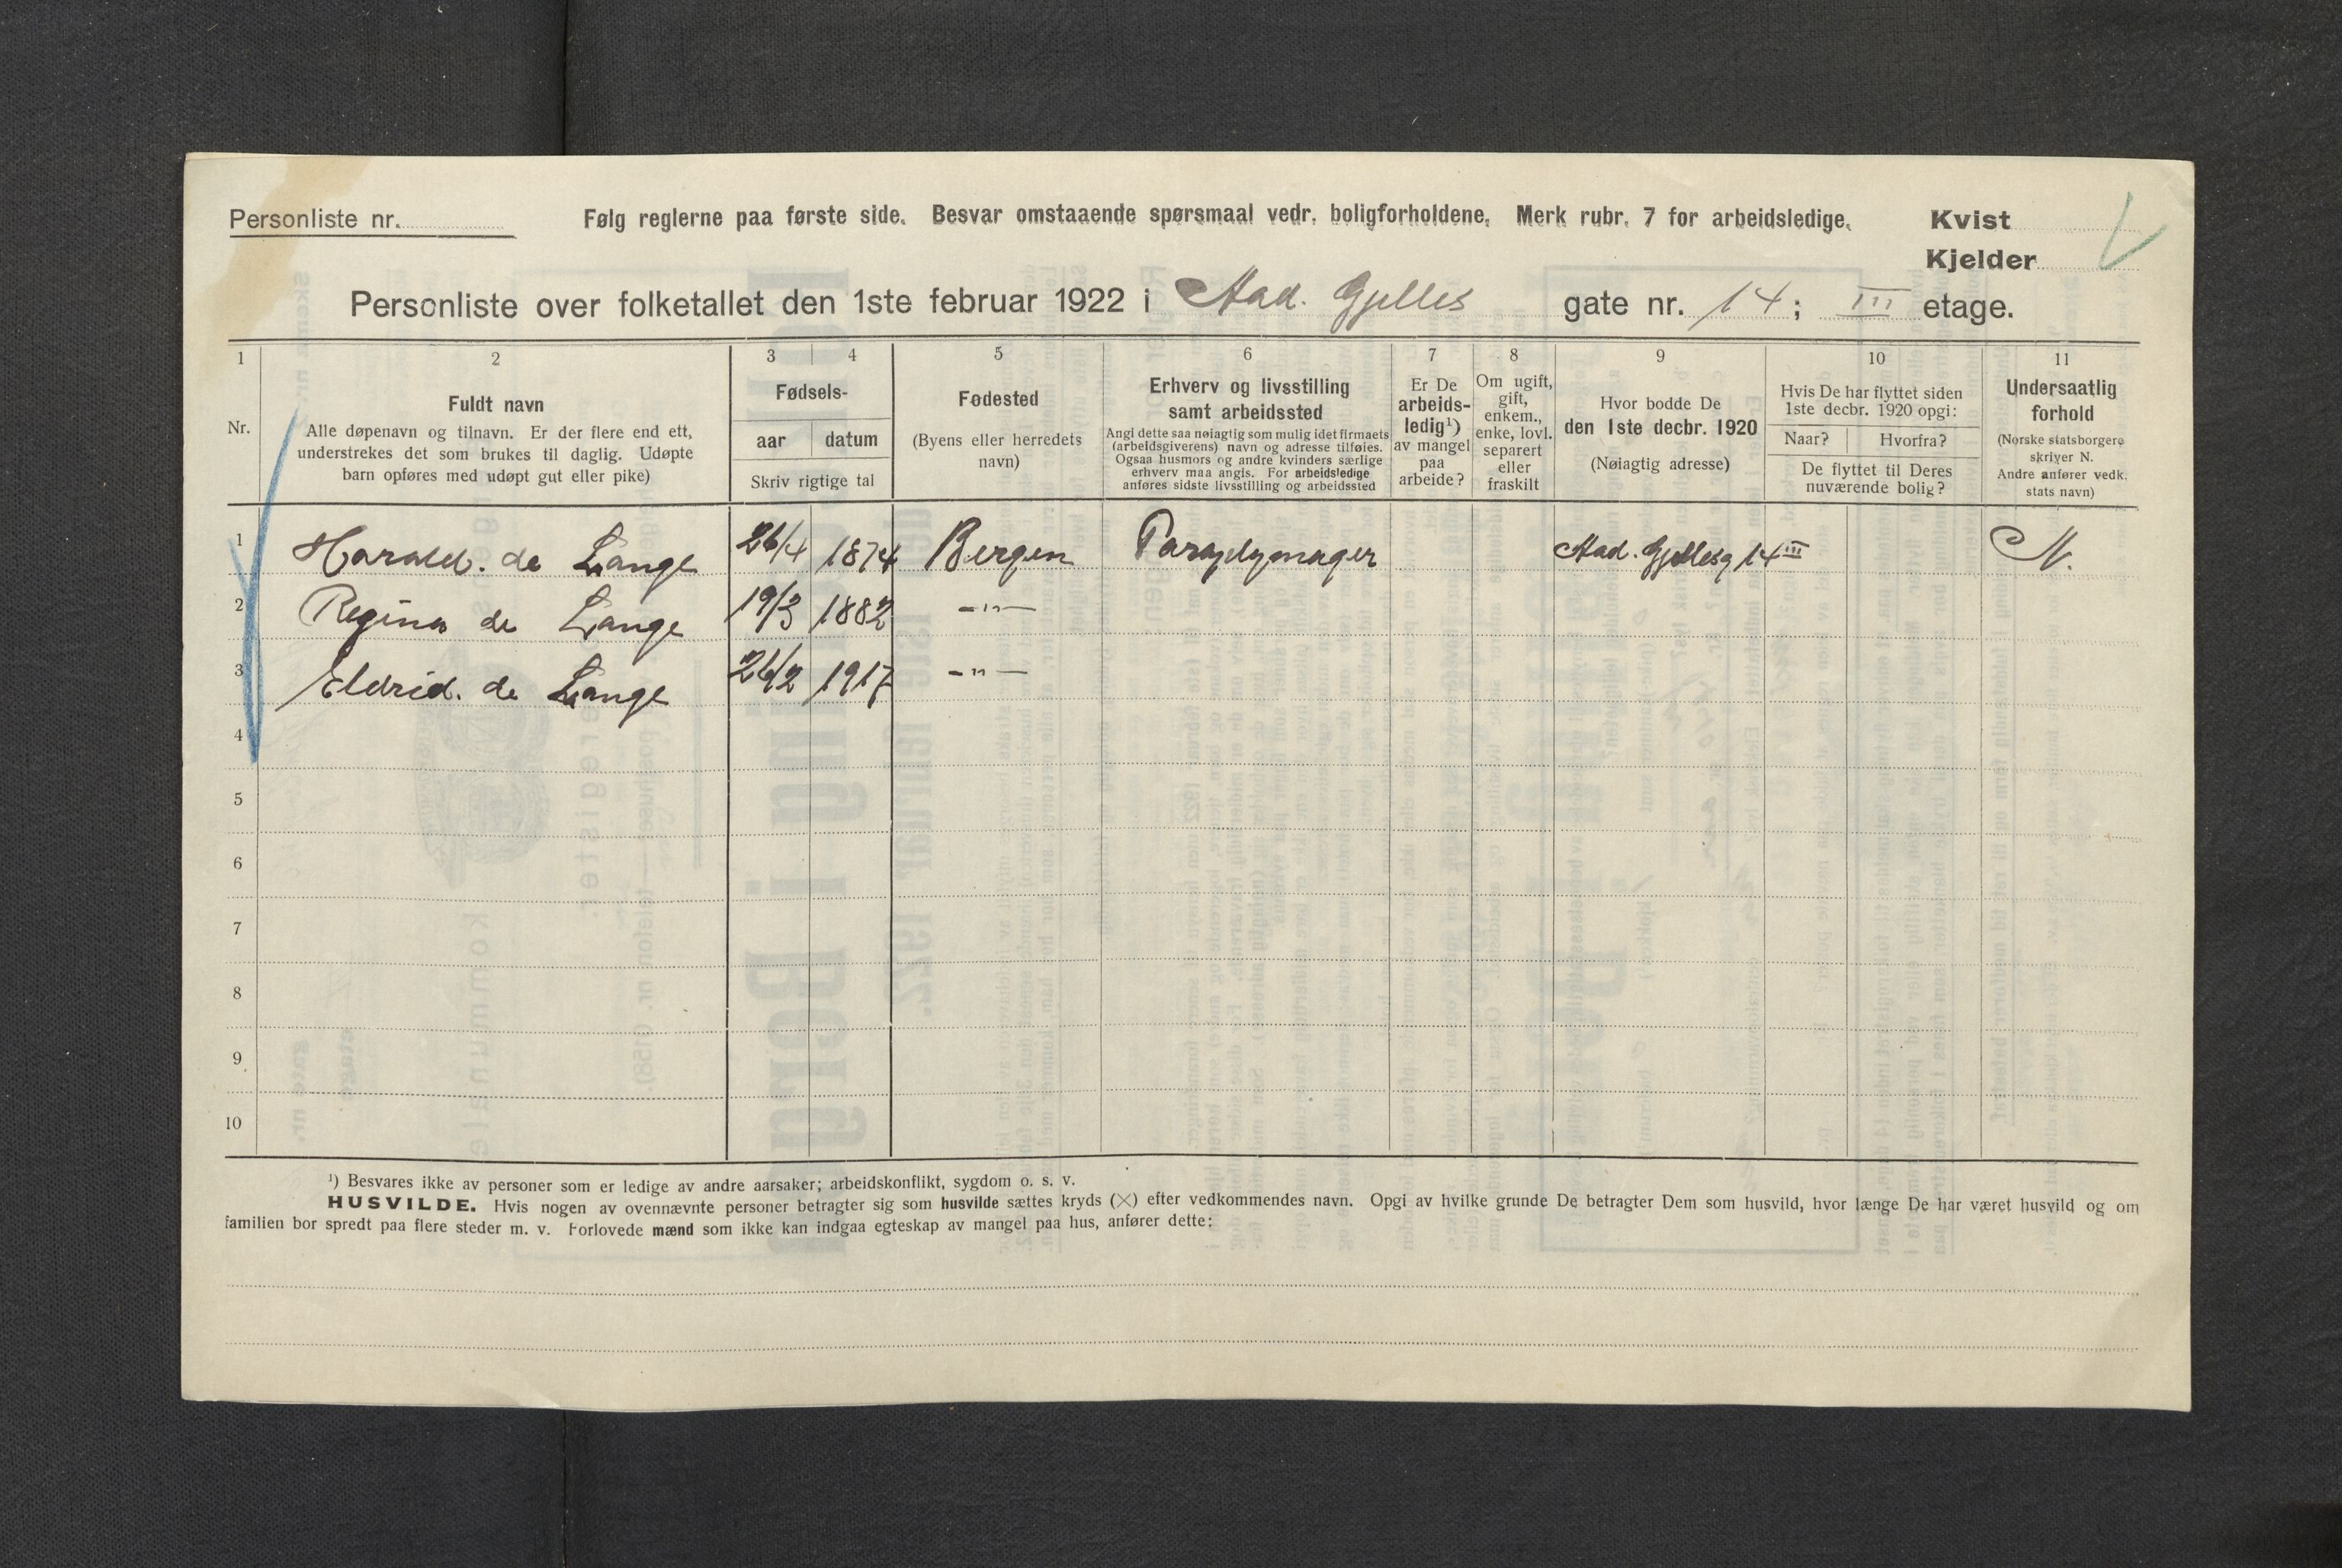 Personliste nr.
Følg reglerne paa første side. Besvar omstaaende spørsmaal vedr. boligforholdene. Merk rubr. 7 for arbeidsledige.
Kvist
Kjelder
Personliste over folketallet den 1ste februar 1922 i Aad. Gjelles gate nr. 14; III etage.
1 2 3 4 5 6 7 8 9 10 11
Nr.
Fuldt navn
Alle døpenavn og tilnavn. Er der flere end ett,
understrekes det som brukes til daglig. Udøpte
barn opføres med udøpt gut eller pike)
Fødsels-
aar datum
Skriv rigtige tal
Fødested
(Byens eller herredets
navn)
Erhverv og livsstilling
samt arbeidssted
Angi dette saa nøiagtig som mulig idet firmaets
(arbeidsgiverens) navn og adresse tilføies.
Ogsaa husmors og andre kvinders særlige
erhverv maa angis. For arbeidsledige
anføres sidste livsstilling og arbeidssted
Er De
arbeids-
ledig¹)
av mangel
paa
arbeide?
Om ugift,
gift,
enkem.,
enke, lovl.
separert
eller
fraskilt
Hvor bodde De
den 1ste decbr. 1920
(Nøiagtig adresse)
Hvis De har flyttet siden
1ste decbr. 1920 opgi:
Naar? Hvorfra?
De flyttet til Deres
nuværende bolig?
Undersaatlig
forhold
(Norske statsborgere
skriver N.
Andre anfører vedk.
stats navn)
1 Harald. de Lange 26/4 1874 Bergen Paraplymager Aad. Gjellesg 14 III N.
2 Regina de Lange 19/3 1882 —"—
3 Eldrid. de Lange 26/2 1917 —"—
4
5
6
7
8
9
10
¹) Besvares ikke av personer som er ledige av andre aarsaker; arbeidskonflikt, sygdom o. s. v.
HUSVILDE. Hvis nogen av ovennævnte personer betragter sig som husvilde sættes kryds (×) efter vedkommendes navn. Opgi av hvilke grunde De betragter Dem som husvild, hvor længe De har været husvild og om
familien bor spredt paa flere steder m. v. Forlovede mænd som ikke kan indgaa egteskap av mangel paa hus, anfører dette: